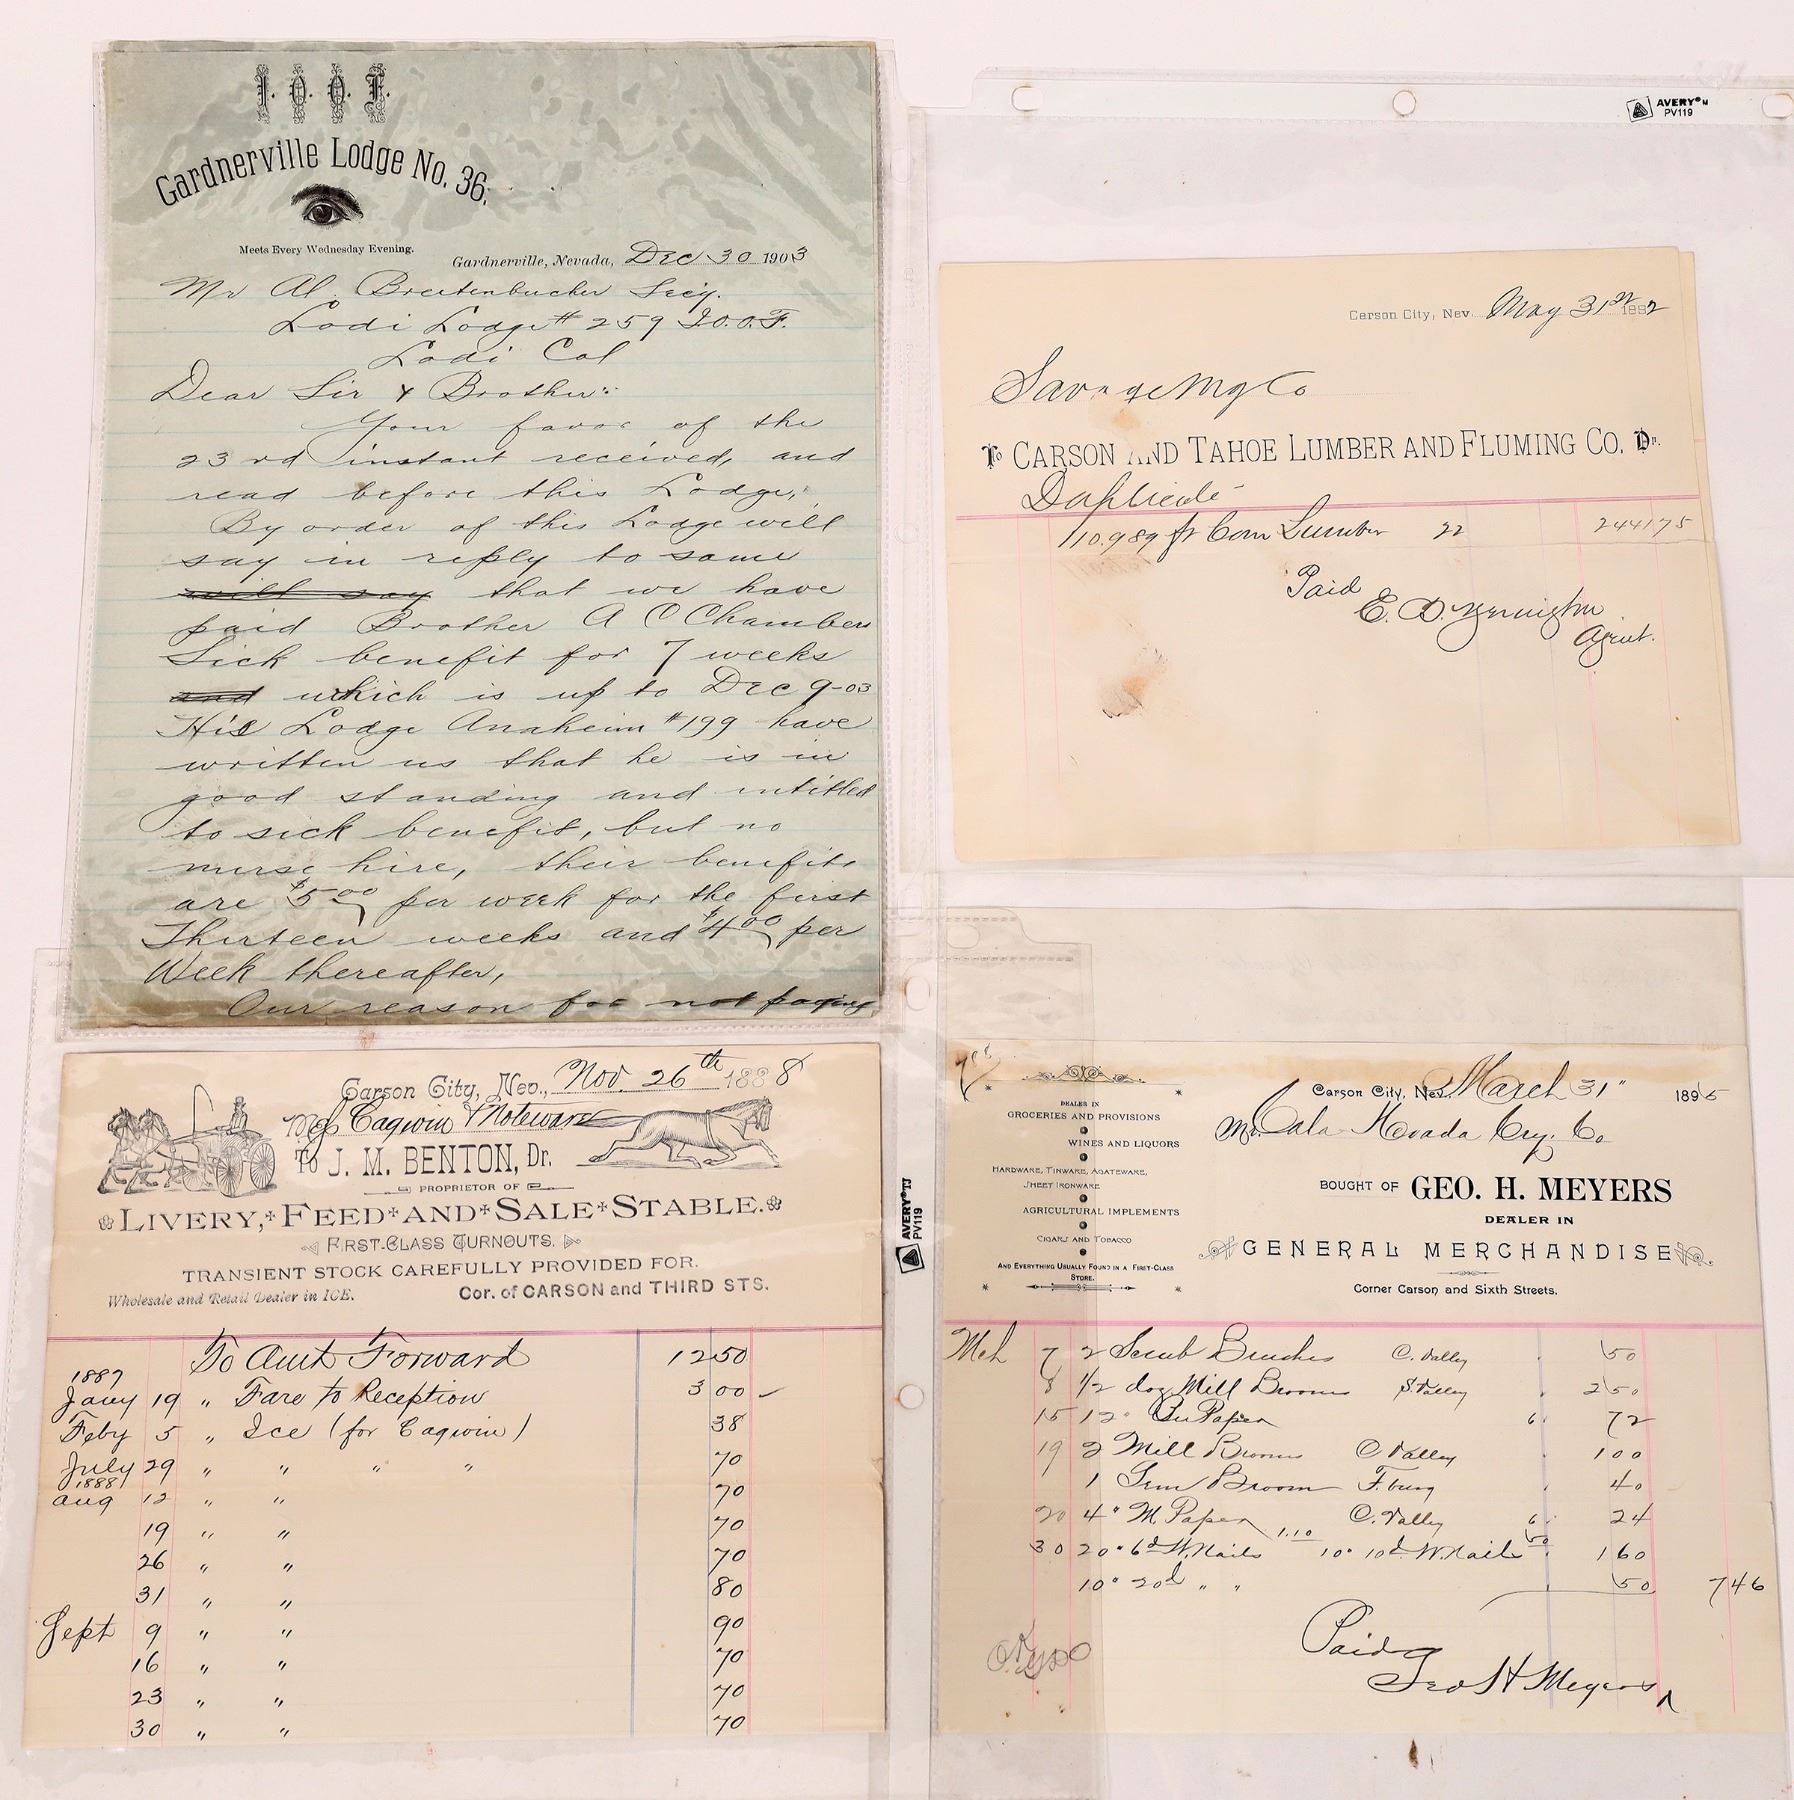 I. O. O. F.
Gardnerville Lodge No. 36.
Meets Every Wednesday Evening.
Gardnerville, Nevada, Dec 30 1903
Mr Al. Breitenbucher Secy.
Lodi Lodge # 259 I.O.O.F.
Lodi Cal
Dear Sir & Brother:
Your favor of the
23rd instant received, and
read before this Lodge,
By order of this Lodge will
say in reply to same
will say that we have
paid Brother A C Chambers
Sick benefit for 7 weeks
and which is up to Dec 9-03
His Lodge Anaheim #199 have
written us that he is in
good standing and intitled
to sick benefit, but no
nurse hire, their benefits
are $5.00 per week for the first
Thirteen weeks and $4.00 per
Week thereafter,
Our reason for not paying
AVERY® M
PV119
Carson City, Nev. May 31st 1892
Savage Mg Co
To CARSON AND TAHOE LUMBER AND FLUMING CO. Dr.
Duplicate
110.989 ft Com Lumber 22 2441 75
Paid
E. D. Yerington
Agent.
Carson City, Nev., Nov. 26th 1888
Mess Cagwin & Noteware
To J. M. BENTON, Dr.
PROPRIETOR OF
LIVERY, FEED AND SALE STABLE.
FIRST-CLASS TURNOUTS.
TRANSIENT STOCK CAREFULLY PROVIDED FOR.
Wholesale and Retail Dealer in ICE. Cor. of CARSON and THIRD STS.
To Amt Forward 12 50
1887
Jany 19 " Fare to Reception 3 00
Feby 5 " Ice (for Cagwin) 38
July 29 " " " " 70
1888
Aug 12 " " 70
19 " " 70
26 " " 70
31 " " 80
Sept 9 " " 90
16 " " 70
23 " " 70
30 " " 70
AVERY®
PV119
DEALER IN
GROCERIES AND PROVISIONS
WINES AND LIQUORS
HARDWARE, TINWARE, AGATEWARE,
SHEET IRONWARE
AGRICULTURAL IMPLEMENTS
CIGARS AND TOBACCO
AND EVERYTHING USUALLY FOUND IN A FIRST-CLASS
STORE.
Carson City, Nev. March 31" 1895
Mr. Cala Nevada Cry. Co
BOUGHT OF GEO. H. MEYERS
DEALER IN
GENERAL MERCHANDISE
Corner Carson and Sixth Streets.
Mch 7 2 Scrub Brushes C. Valley 50
8 1/2 doz Mill Brooms S. Valley 2 50
15 12 " Paper 6 72
19 2 Mill Brooms C Valley 1 00
1 Broom F. burg 40
20 4 " M. Paper C. Valley 6 24
30 20 " 6d W. Nails 1.10 10 " 10d W. Nails 50 1 60
10 " 20d " " 50 7 46
Paid
Geo H Meyers